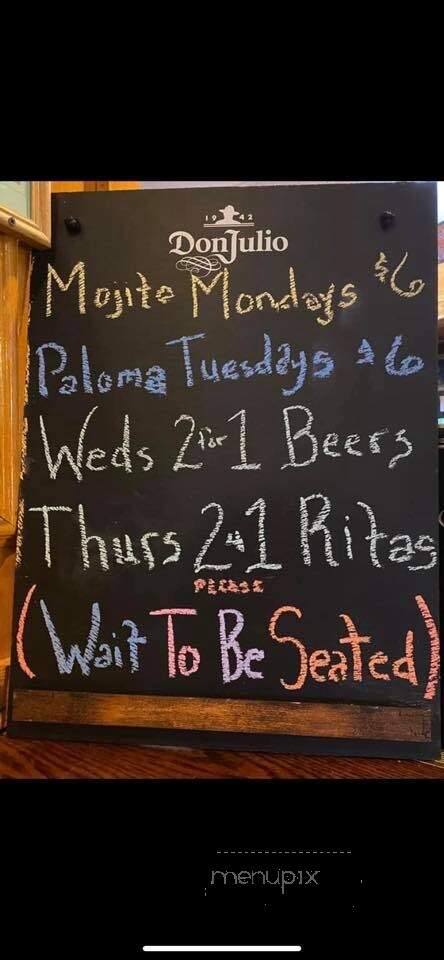 1942
Don Julio
Mojito Mondays $6
Paloma Tuesdays $6
Weds 2 for 1 Beers
Thurs 2 4 1 Ritas
PLEASE
(Wait To Be Seated)
menupix